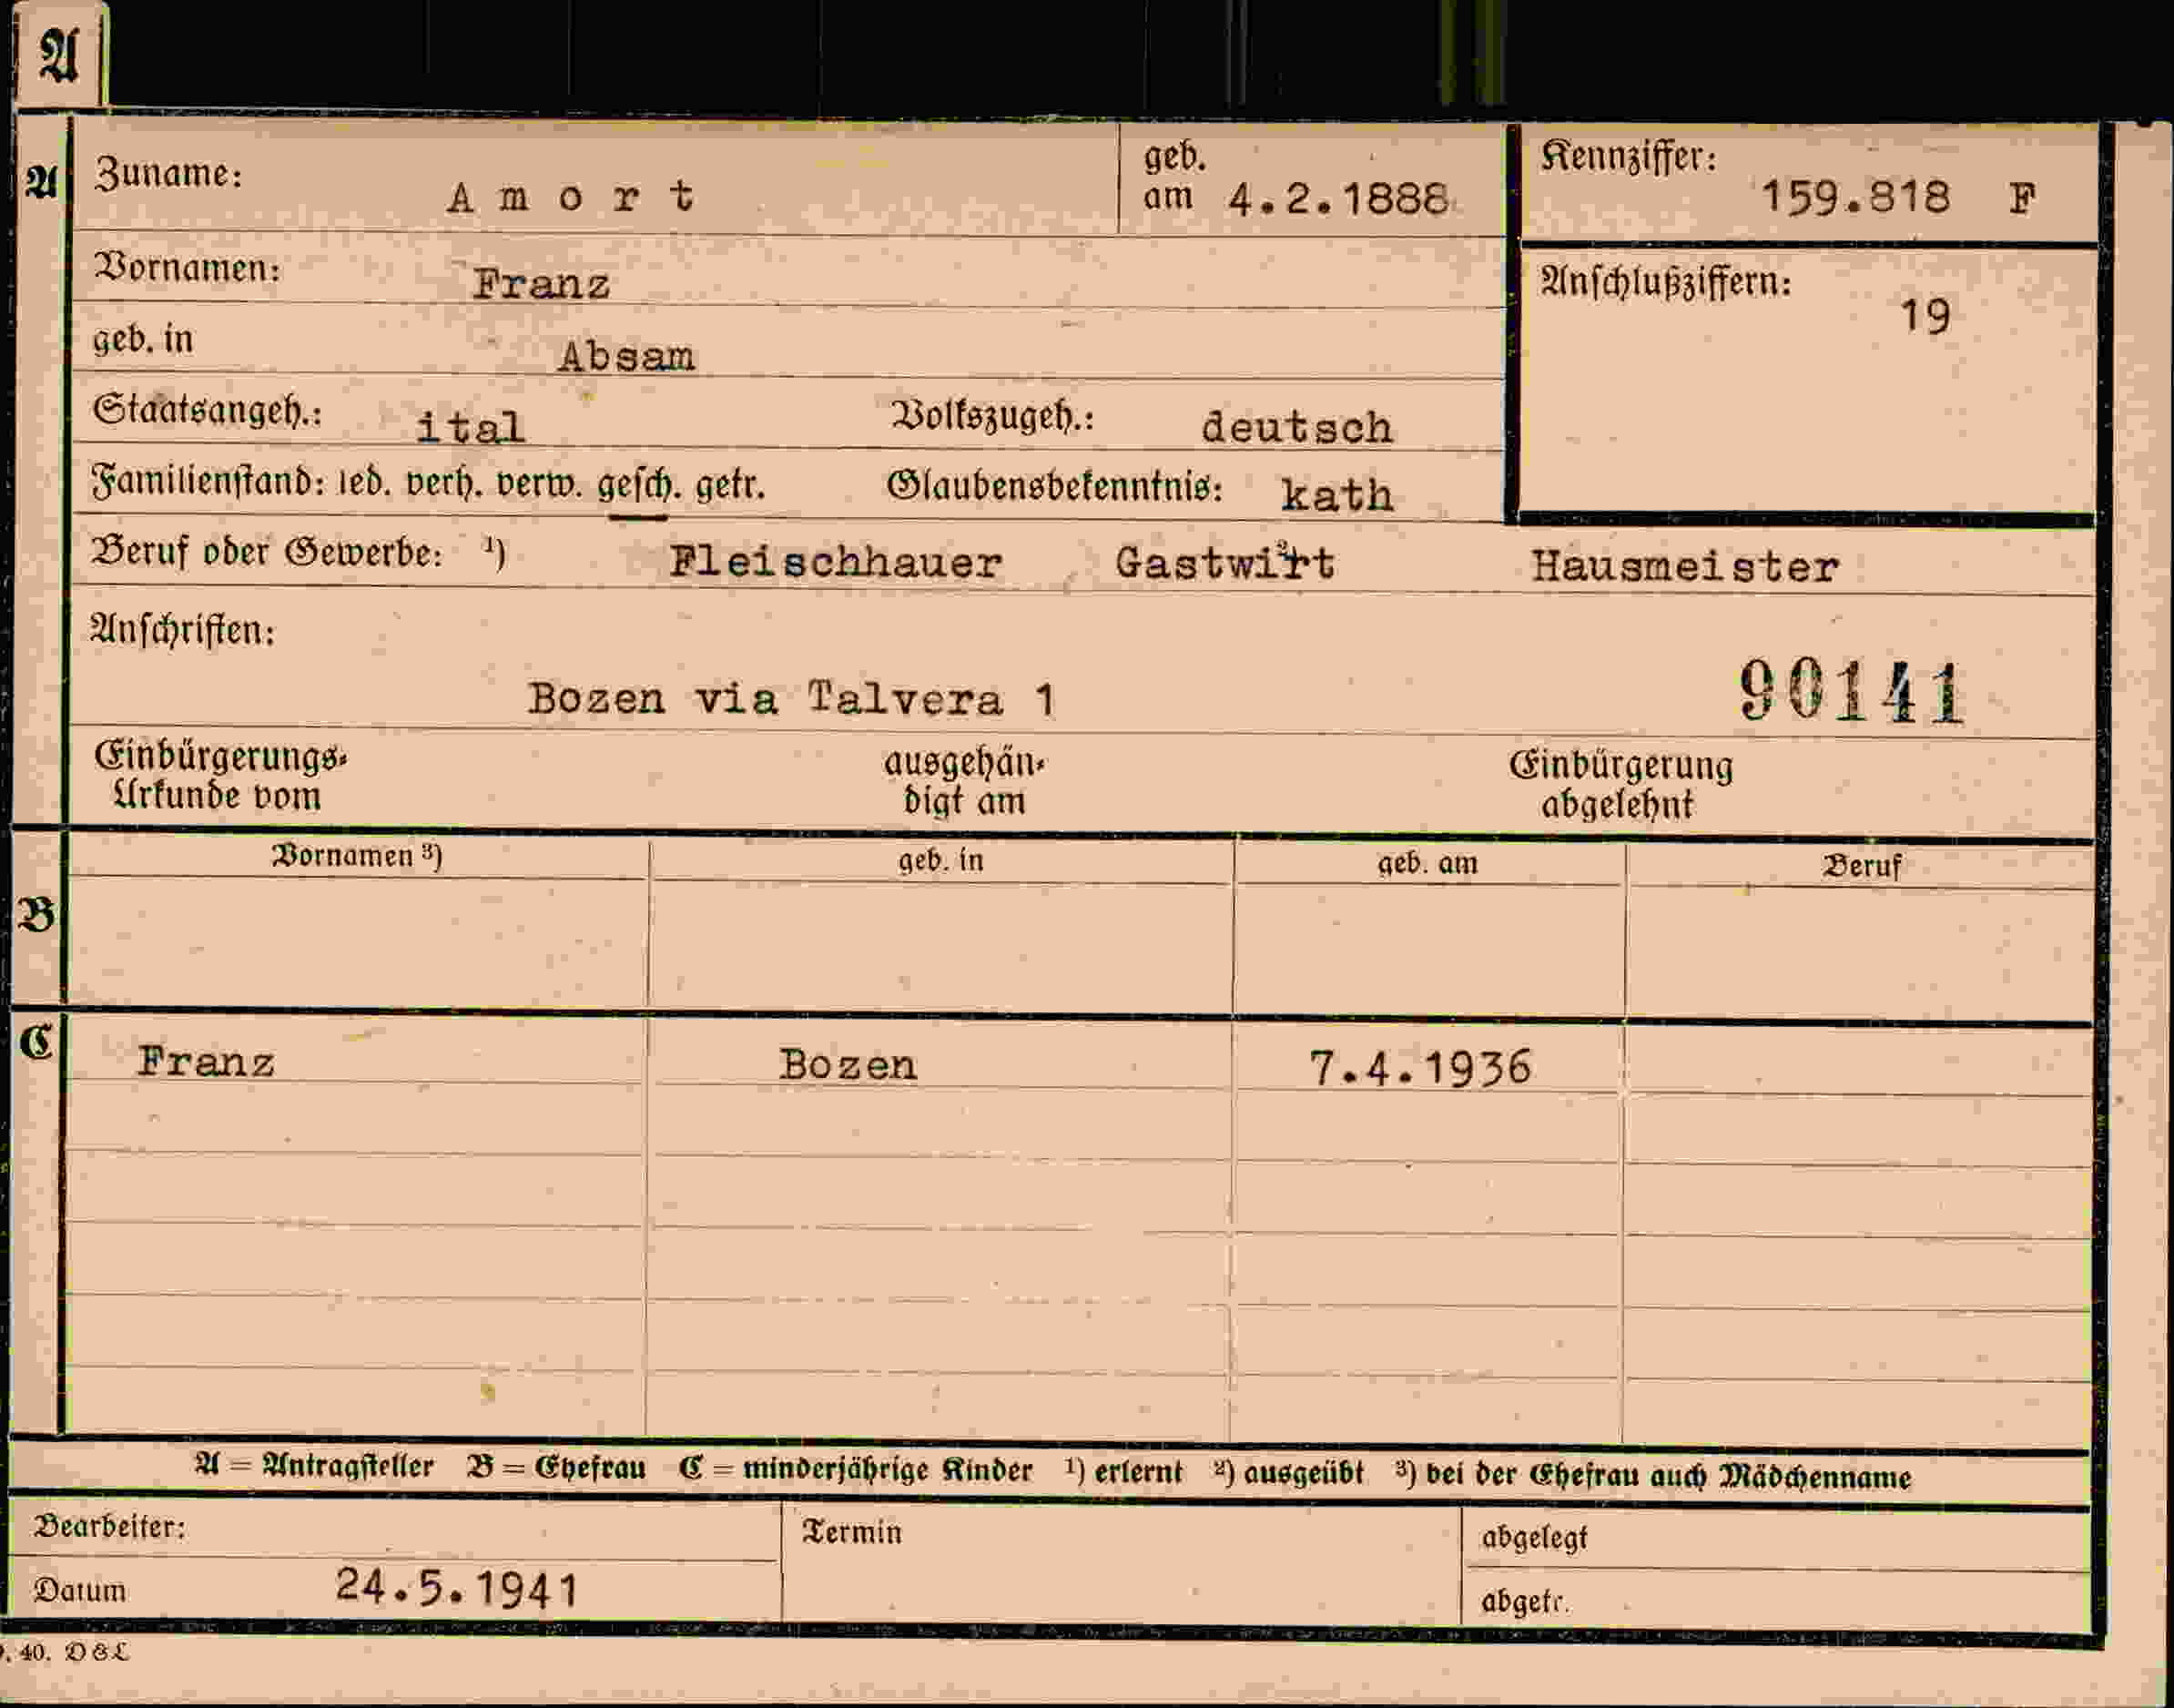 A
A Zuname: Amort geb. am 4.2.1888 Kennziffer: 159.818 F
Vornamen: Franz Anschlußziffern: 19
geb. in Absam
Staatsangeh.: ital Volkszugeh.: deutsch
Familienstand: led. verh. verw. gesch. getr. Glaubensbekenntnis: kath
Beruf oder Gewerbe: ¹) Fleischhauer Gastwirt ²) Hausmeister
Anschriften:
Bozen via Talvera 1 90141
Einbürgerungs- ausgehän- Einbürgerung
Urkunde vom digt am abgelehnt
Vornamen ³) geb. in geb. am Beruf
B
C Franz Bozen 7.4.1936
A = Antragsteller B = Ehefrau C = minderjährige Kinder ¹) erlernt ²) ausgeübt ³) bei der Ehefrau auch Mädchenname
Bearbeiter: Termin abgelegt
Datum 24.5.1941 abgetr.
40. D&L